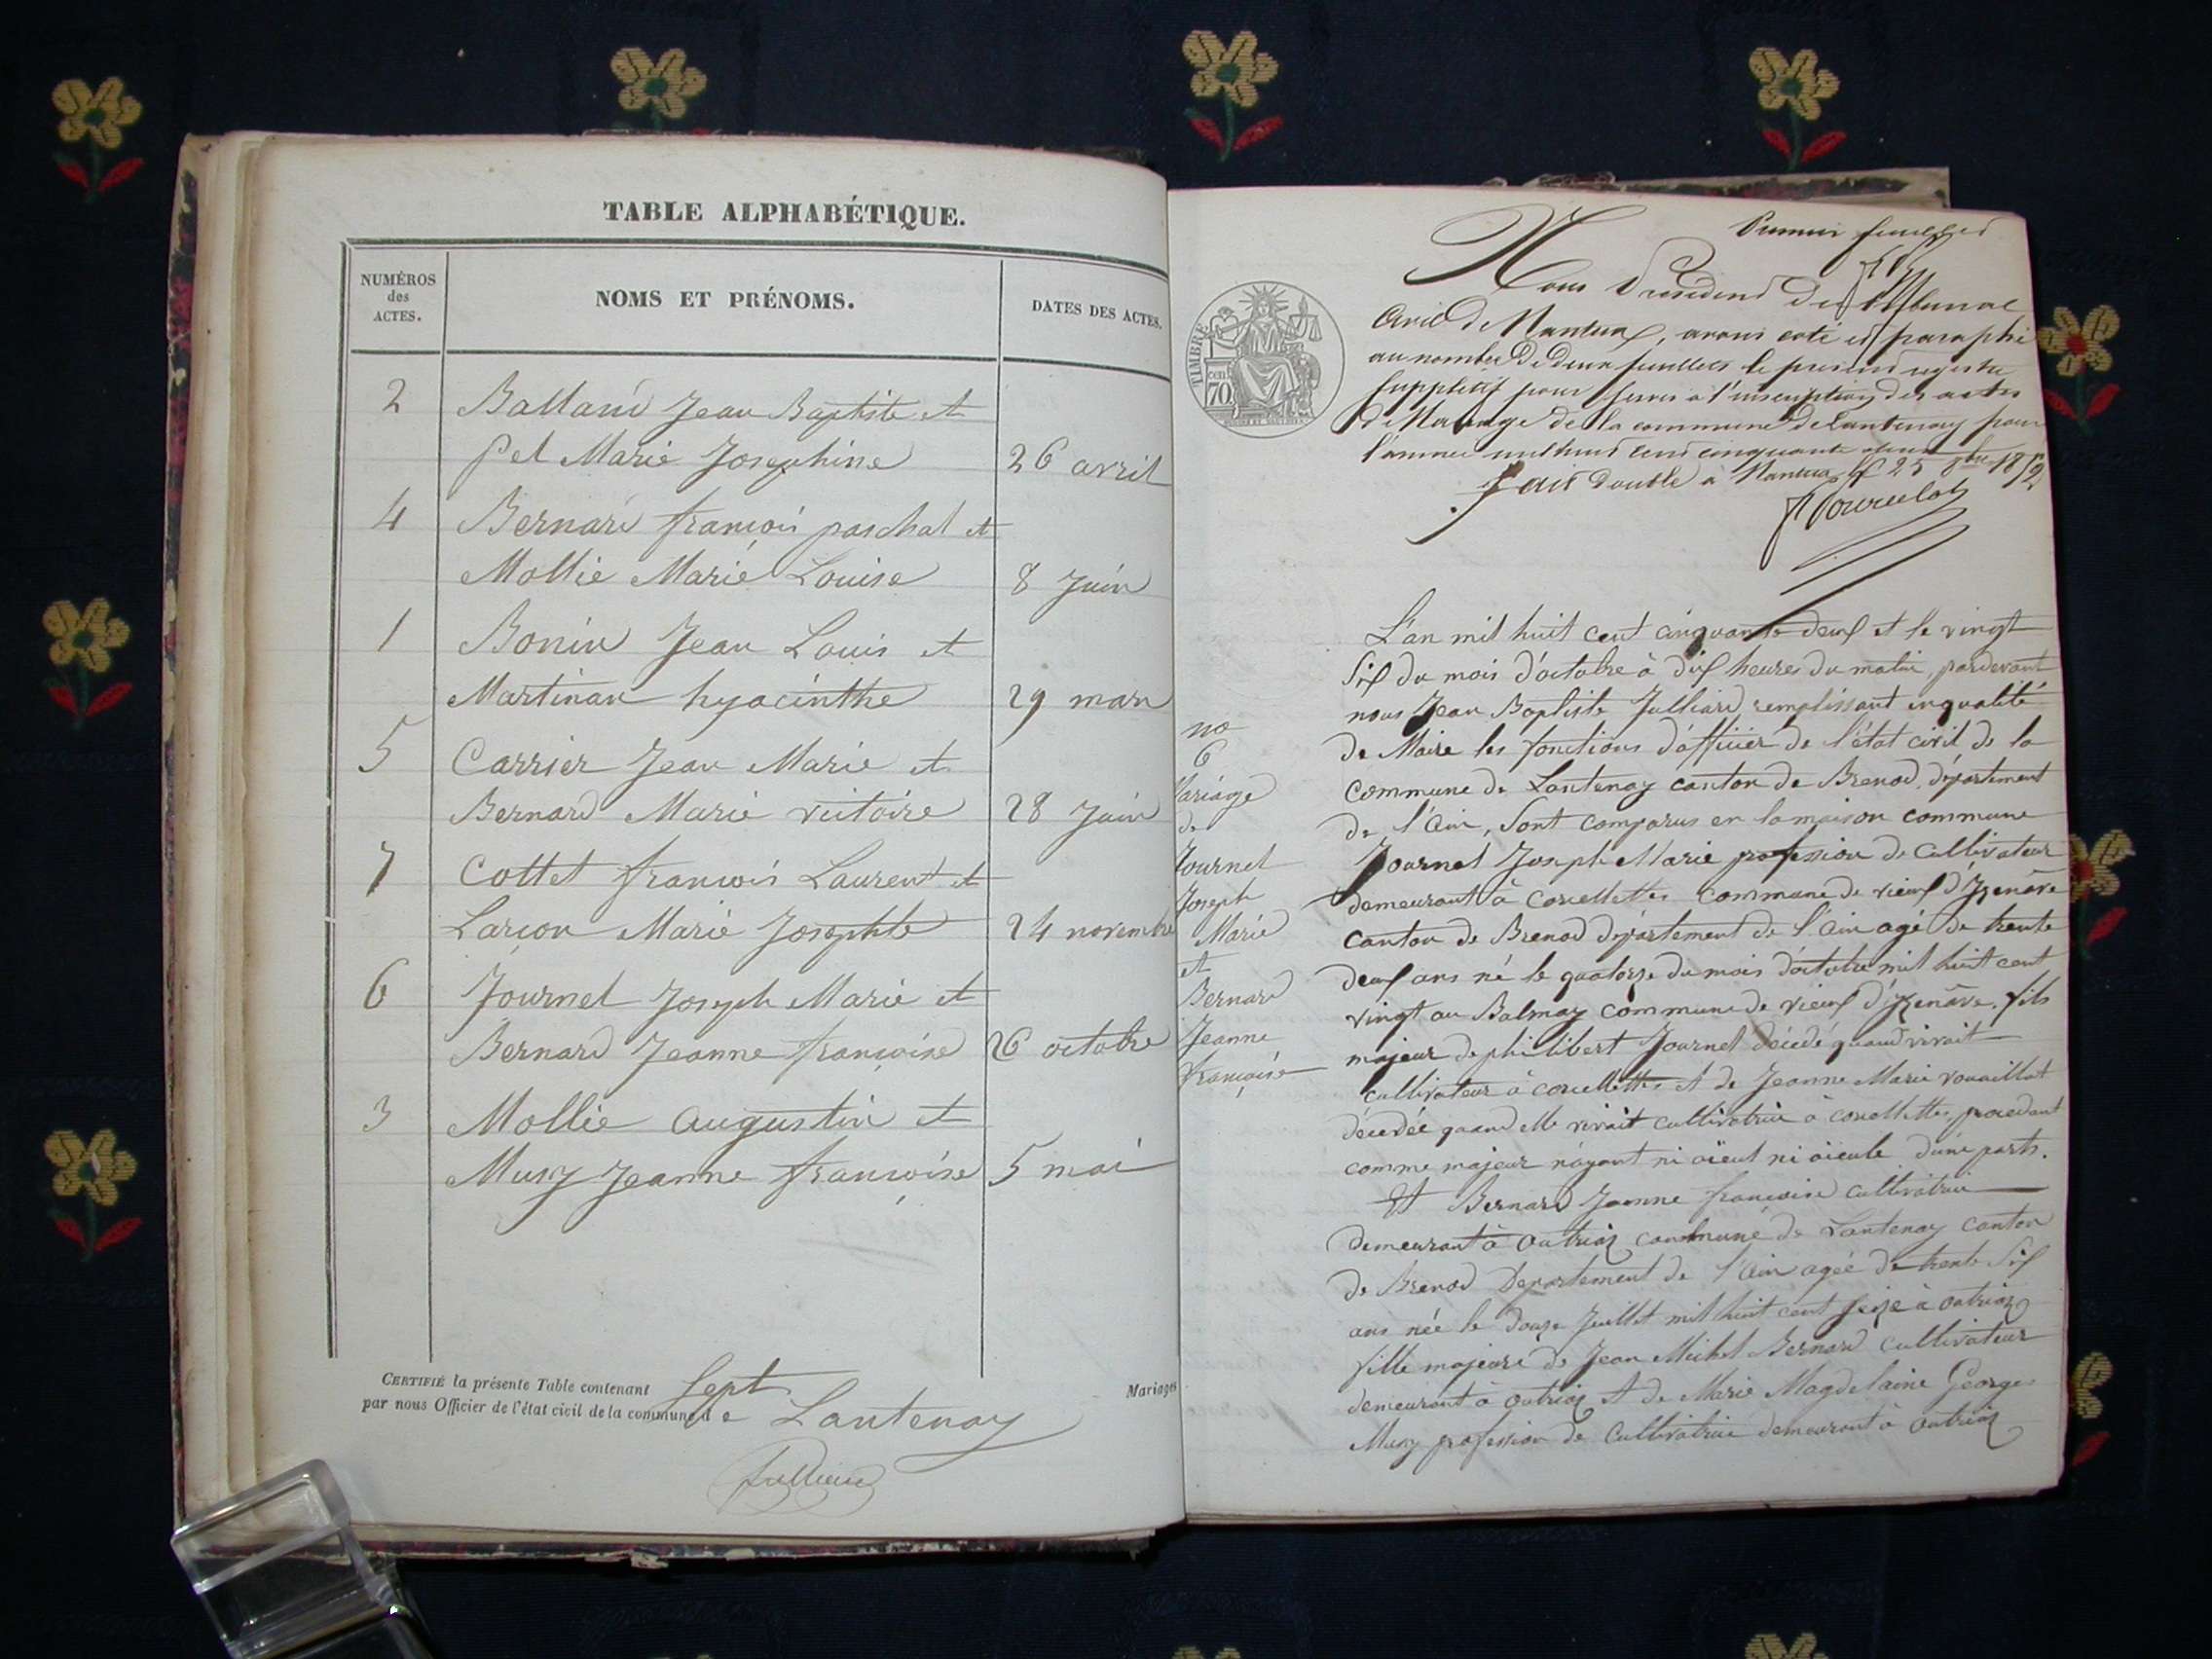 TABLE ALPHABÉTIQUE.
NUMÉROS
des
ACTES.
NOMS ET PRÉNOMS.
DATES DES ACTES.
2 Balland Jean Baptiste et
Pel Marie Josephine 26 avril
4 Bernard françois paschal et
Mollie Marie Louise 8 Juin
1 Bonin Jean Louis et
Martinan hyacinthe 29 mars
5 Carrier Jean Marie et
Bernard Marie victoire 28 Juin
7 Cottet françois Laurent et
Larçon Marie Josephte 24 novembre
6 Journet Joseph Marie et
Bernard Jeanne françoise 26 octobre
3 Mollie augustin et
Musy Jeanne françoise 5 mai
CERTIFIÉ la présente Table contenant Sept Mariages
par nous Officier de l'état civil de la commune de Lantenay
Julliard
Premier feuillet
Nous Président du tribunal
Civil de Nantua, avons coté et paraphé
au nombre de deux feuillets le présent registre
supplétif pour servir à l'inscription des actes
de Mariage de la commune de Lantenay pour
l'année mil huit cent cinquante deux
Fait double à Nantua le 25 8bre 1852
TIMBRE
70
L'an mil huit cent cinquante deux et le vingt
Six du mois d'octobre à dix heures du matin, pardevant
nous Jean Baptiste Julliard remplissant en qualité
de Maire les fonctions d'officier de l'état civil de la
commune de Lantenay canton de Brenod, département
de l'Ain, Sont comparus en la maison commune
Journet Joseph Marie profession de Cultivateur
demeurant à corcellettes commune de vieux d'Izenâve
canton de Brenod département de l'Ain agé de trente
deux ans né le quatorze du mois d'octobre mil huit cent
vingt au Balmay commune de vieux d'izenâve, fils
majeur de philibert Journet décédé quand vivait
cultivateur à corcellettes et de Jeanne Marie vouaillat
décédée quand elle vivait cultivatrice à corcellettes, procédant
comme majeur n'ayant ni aïeul ni aïeule d'une part.
Et Bernard Jeanne françoise cultivatrice
demeurant à Outriaz commune de Lantenay canton
de Brenod Département de l'Ain agée de trente Six
ans née le douze Juillet mil huit cent seize à outriaz
fille majeure de Jean Michel Bernard cultivateur
demeurant à outriaz et de Marie Magdelaine George
Musy profession de Cultivatrice demeurant à outriaz
no
6
Mariage
de
Journet
Joseph
Marie
et
Bernard
Jeanne
françoise